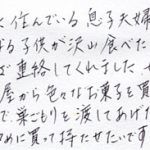 に住んでいる息子夫婦
る子供が沢山食べた
で連絡してくれました
屋から色々なお菓子を買
で巣ごもりを渡してあげた
めに買って持たせたいです